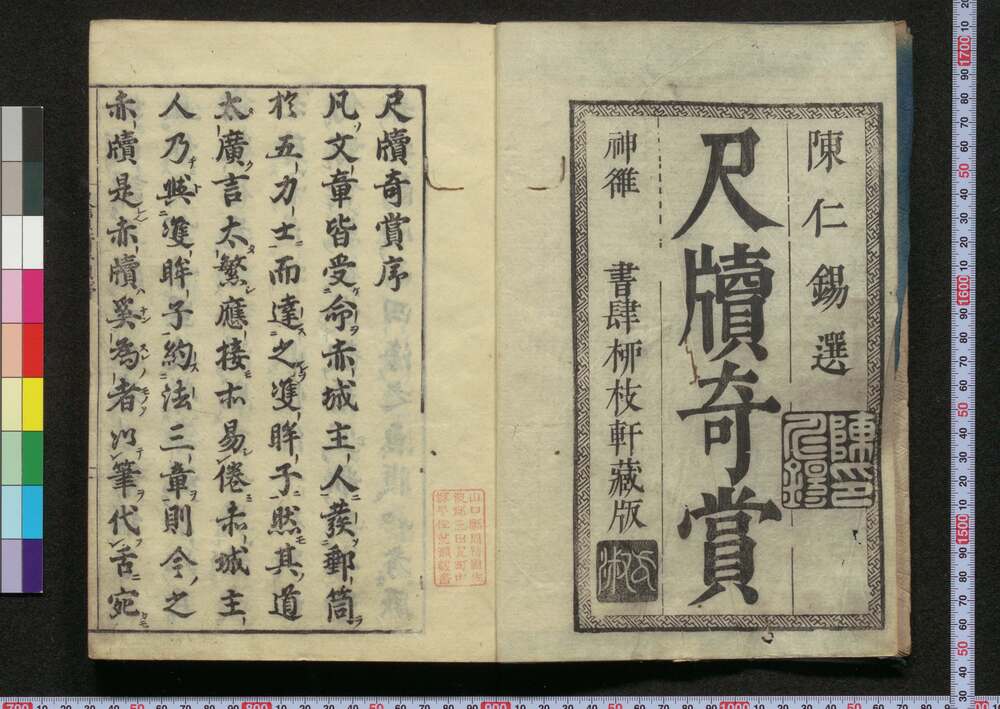 陳仁錫選
尺牘奇賞
神雒 書肆柳枝軒藏版
尺牘奇賞序
凡文章皆受命赤城主人發郵筒
於五力士而達之雙眸子然其道
太廣言太繁應接亦易倦赤城主
人乃與雙眸子約法三章則今之
赤牘是赤牘奚為者以筆代舌宛